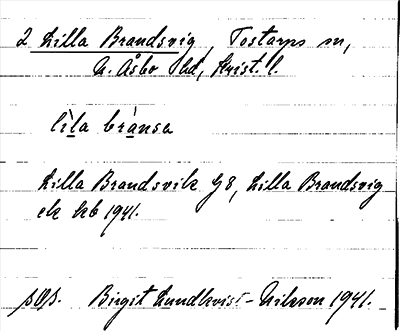 2 Lilla Brandsvig, Tostarps sn,
N. Åsbo hd, Krist. l.
lìla brànsa
Lilla Brandsvik G 8, Lilla Brandsvig
ek kb 1941.
Birgit Lundkvist-Nilsson 1941.